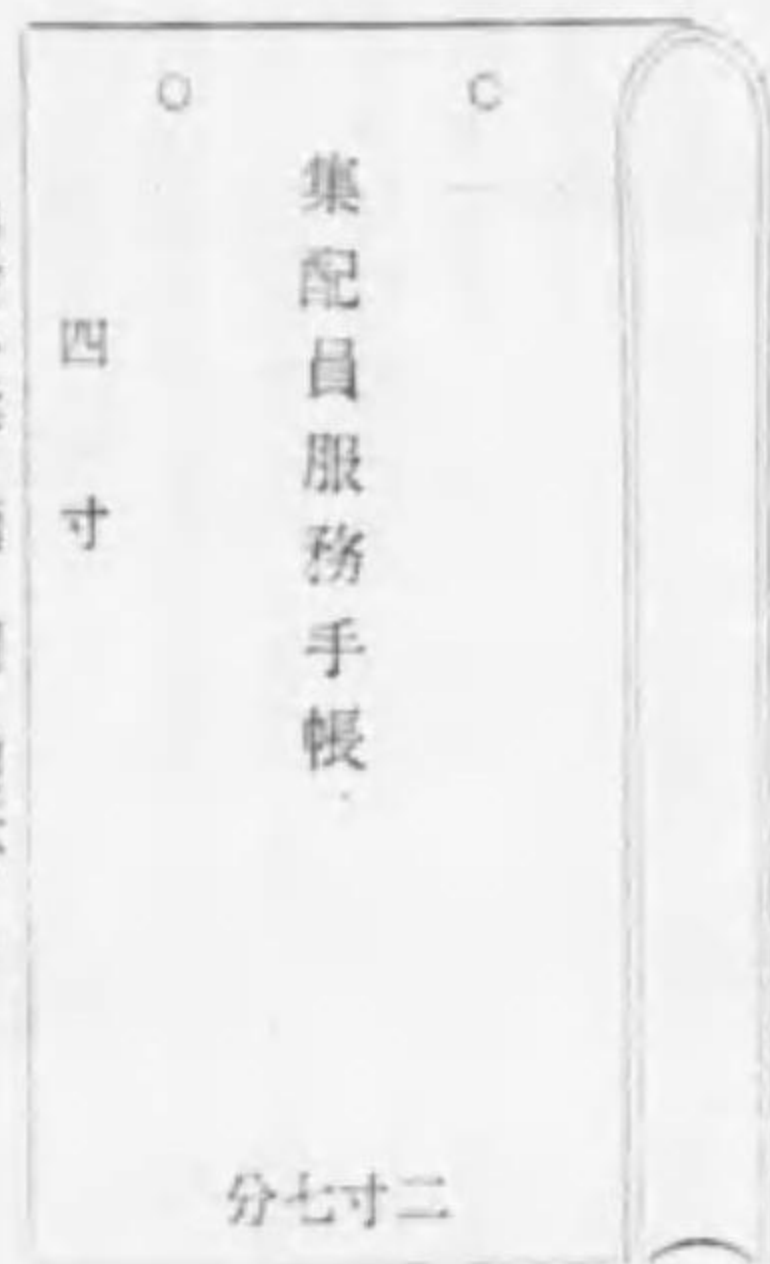 集配員服務手帳
四寸
二寸七分